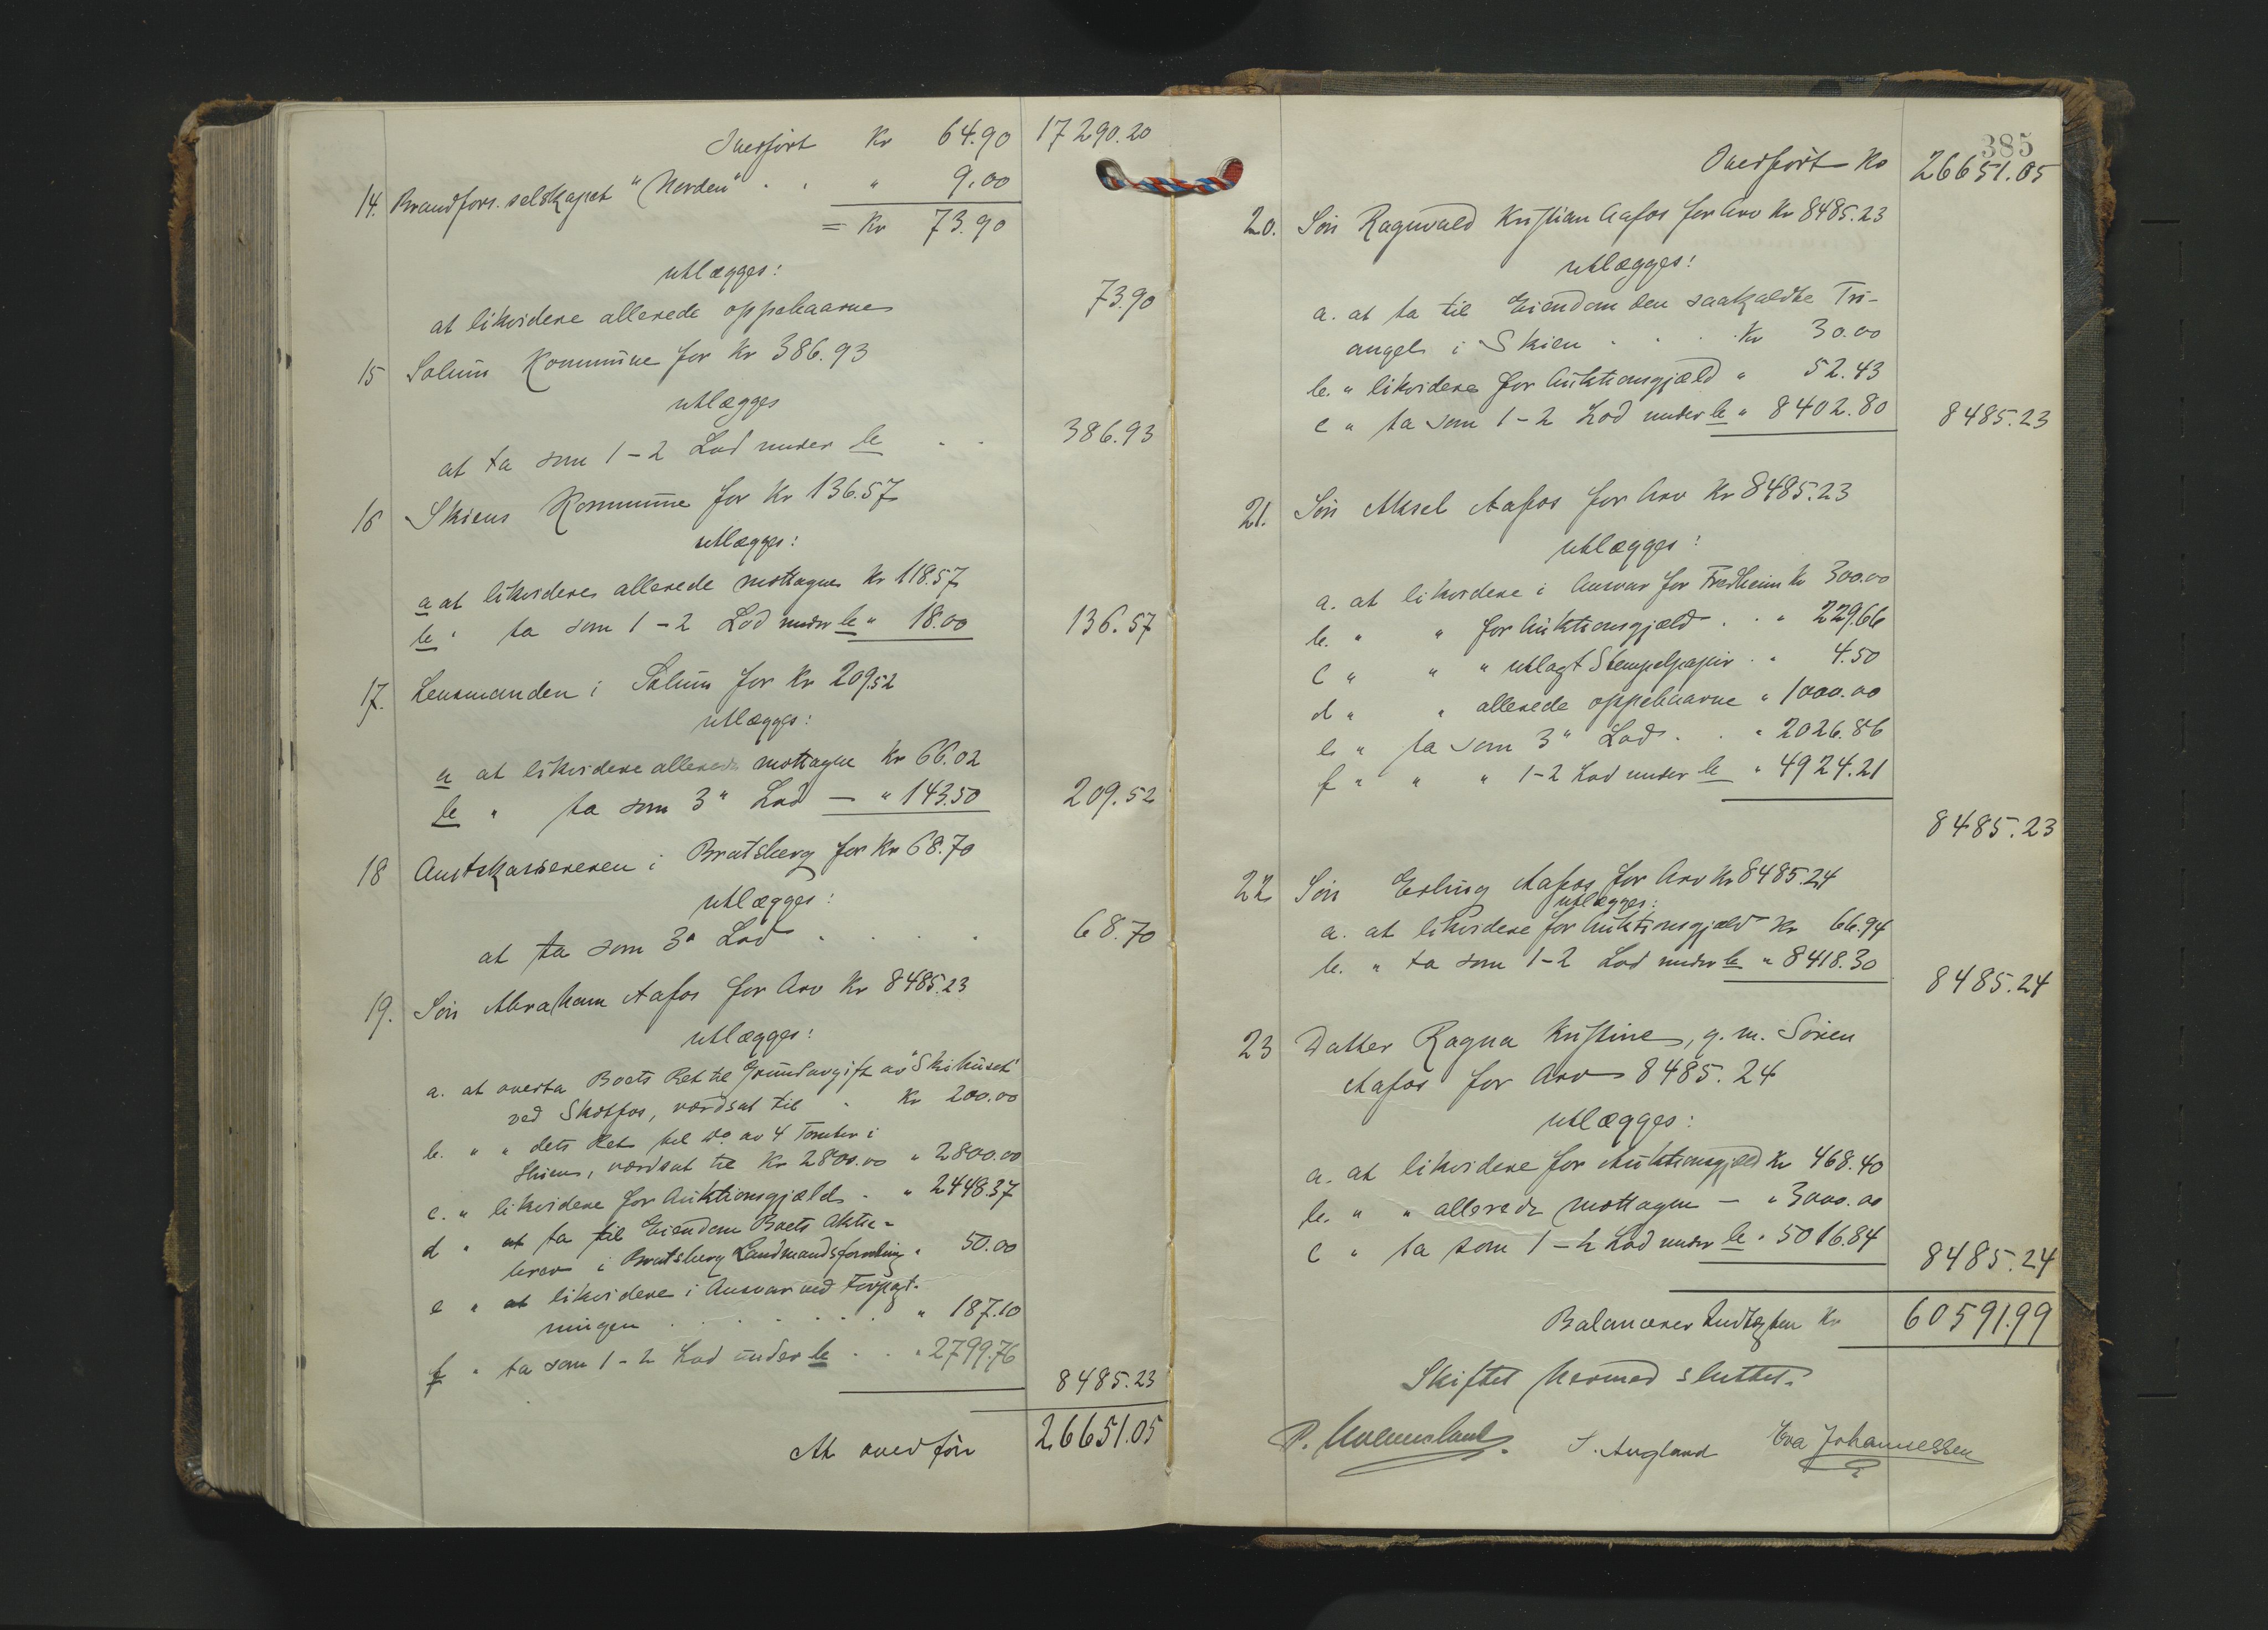 Overført Kr 64.90 17290.20
14. Brandfors. selskapet "Norden" . . " 9.00
= Kr 73.90
utlægges:
at likvidere allerede oppebaarne 73.90
15 Solum Kommune for Kr 386.93
utlægges
at ta som 1-2 Lod under b . . 386.93
16 Skiens Kommune for Kr 136.57
utlægges:
a at likvidere allerede mottagne Kr 118.57
b " ta som 1-2 Lod under b " 18.00 136.57
17. Lensmanden i Solum for Kr 209.52
utlægges:
a at likvidere allerede mottagne Kr 66.02
b " ta som 3" Lod — " 143.50 209.52
18 Amtskassereren i Bratsberg for Kr 68.70
utlægges:
at ta som 3" Lod . . . . 68.70
19. Søn Abraham Aafos for Arv Kr 8485.23
utlægges:
a. at overta Boets Ret til Grundavgift av "Skihuset"
ved Skotfos, værdsat til . Kr 200.00
b. " " dets Ret til do av 4 Tomter i
Skien, værdsat til Kr 2800.00 " 2800.00
c. " likvidere for Auktionsgjæld . " 2448.37
d " at ta til Eiendom Boets Aktie-
brev i Bratsberg Landmandsforening " 50.00
e " at likvidere i Ansvar ved Forpagt-
ningen . . . . . . " 187.10
f " ta som 1-2 Lod under b . . " 2799.76
8485.23
At overføre 26651.05
385
Overført Kr 26651.05
20. Søn Ragnvald Kristian Aafos for Arv Kr 8485.23
utlægges:
a. at ta til Eiendom den saakaldte Tri-
angel i Skien . . . Kr 30.00
b. " likvidere for Auktionsgjæld " 52.43
c " ta som 1-2 Lod under b " 8402.80 8485.23
21. Søn Aksel Aafos for Arv Kr 8485.23
utlægges:
a. at likvidere i Ansvar for Fredheim Kr 300.00
b. " " for Auktionsgjæld . . " 229.66
c " " " utlagt Stempelpapir . " 4.50
d " " allerede oppebaarne " 1000.00
e " ta som 3" Lod . . " 2026.86
f " " " 1-2 Lod under b " 4924.21
8485.23
22 Søn Erling Aafos for Arv Kr 8485.24
utlægges:
a. at likvidere for Auktionsgjæld Kr 66.94
b. " ta som 1-2 Lod under b " 8418.30
8485.24
23 Datter Ragna Kristine, g. m. Søren
Aafos for Arv 8485.24
utlægges:
a. at likvidere for Auktionsgjæld Kr 468.40
b. " " allerede mottagne — " 3000.00
c " ta som 1-2 Lod under b " 5016.84
8485.24
Balancerer Indtægten Kr 60591.99
Skiftet hermed sluttet.
S. Augland Eva Johannessen